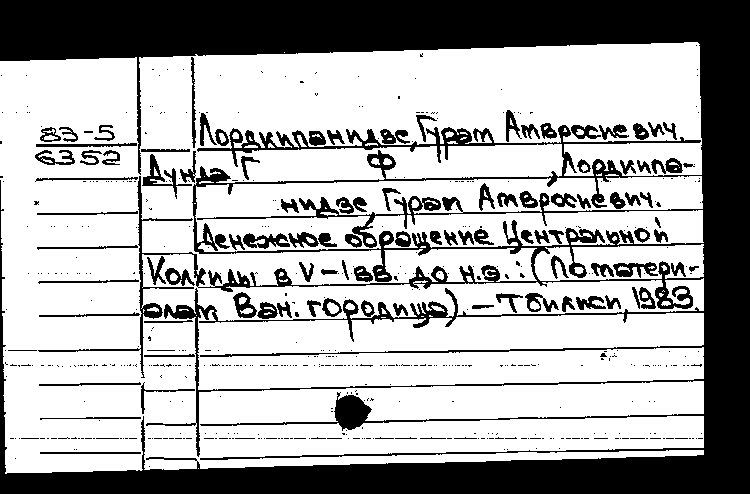 83-5
6352
Лордкипанидзе, Гурам Амвросиевич.
Дунда, Г Ф , Лордкипа-
нидзе, Гурам Амвросиевич.
Денежное обращение Центральной
Колхиды в V-I вв. до н.э. : (По матери-
алам Ван. городища). - Тбилиси, 1983.